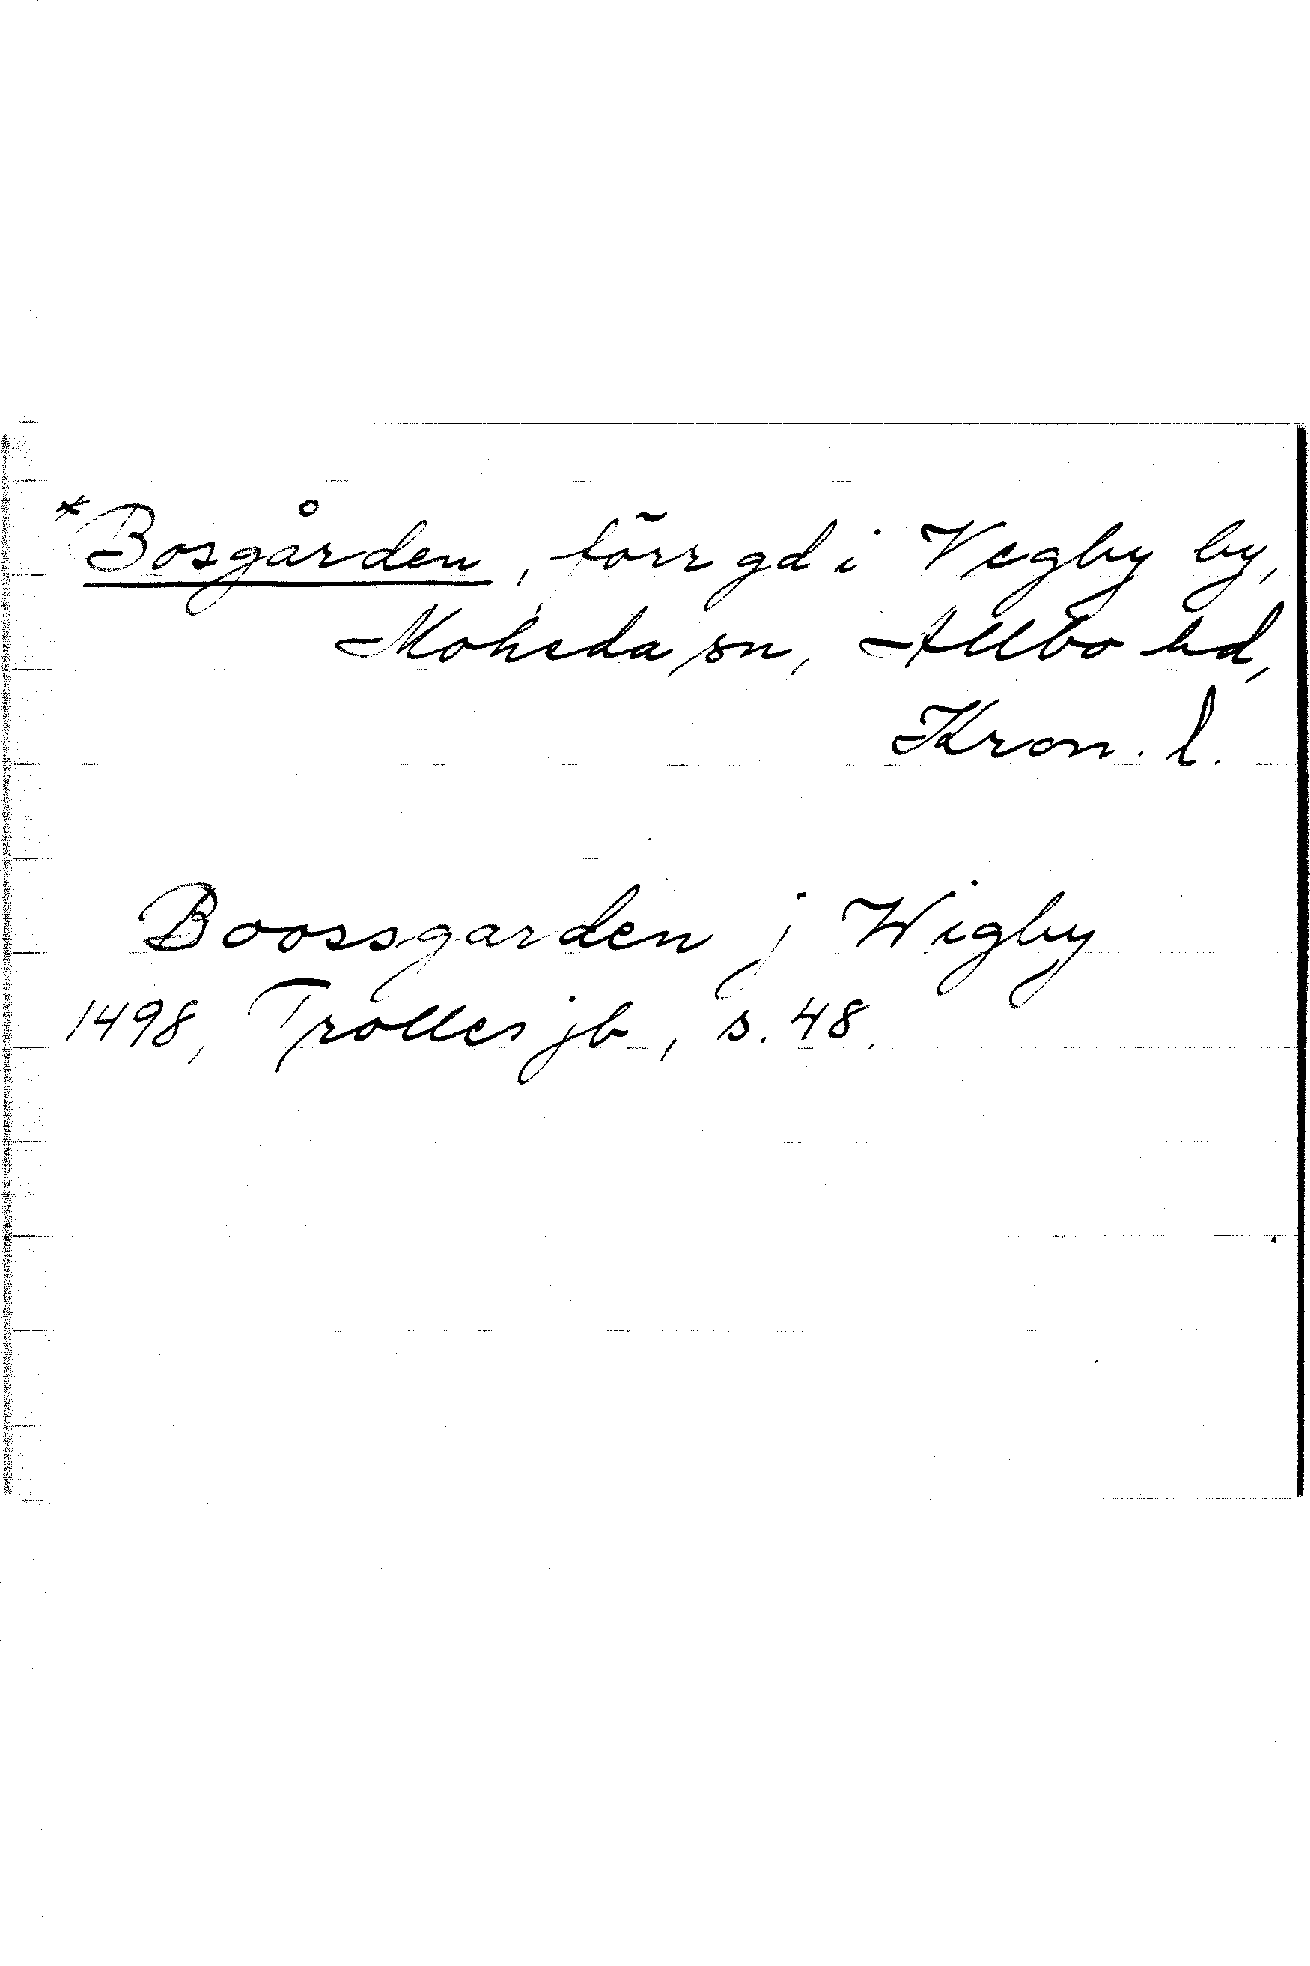 *Bosgården, förr gd i Vegby by,
Moheda sn, Allbo hd,
Kron. l.
Boossgarden j Wigby
1498, Trolles jb, s. 48.